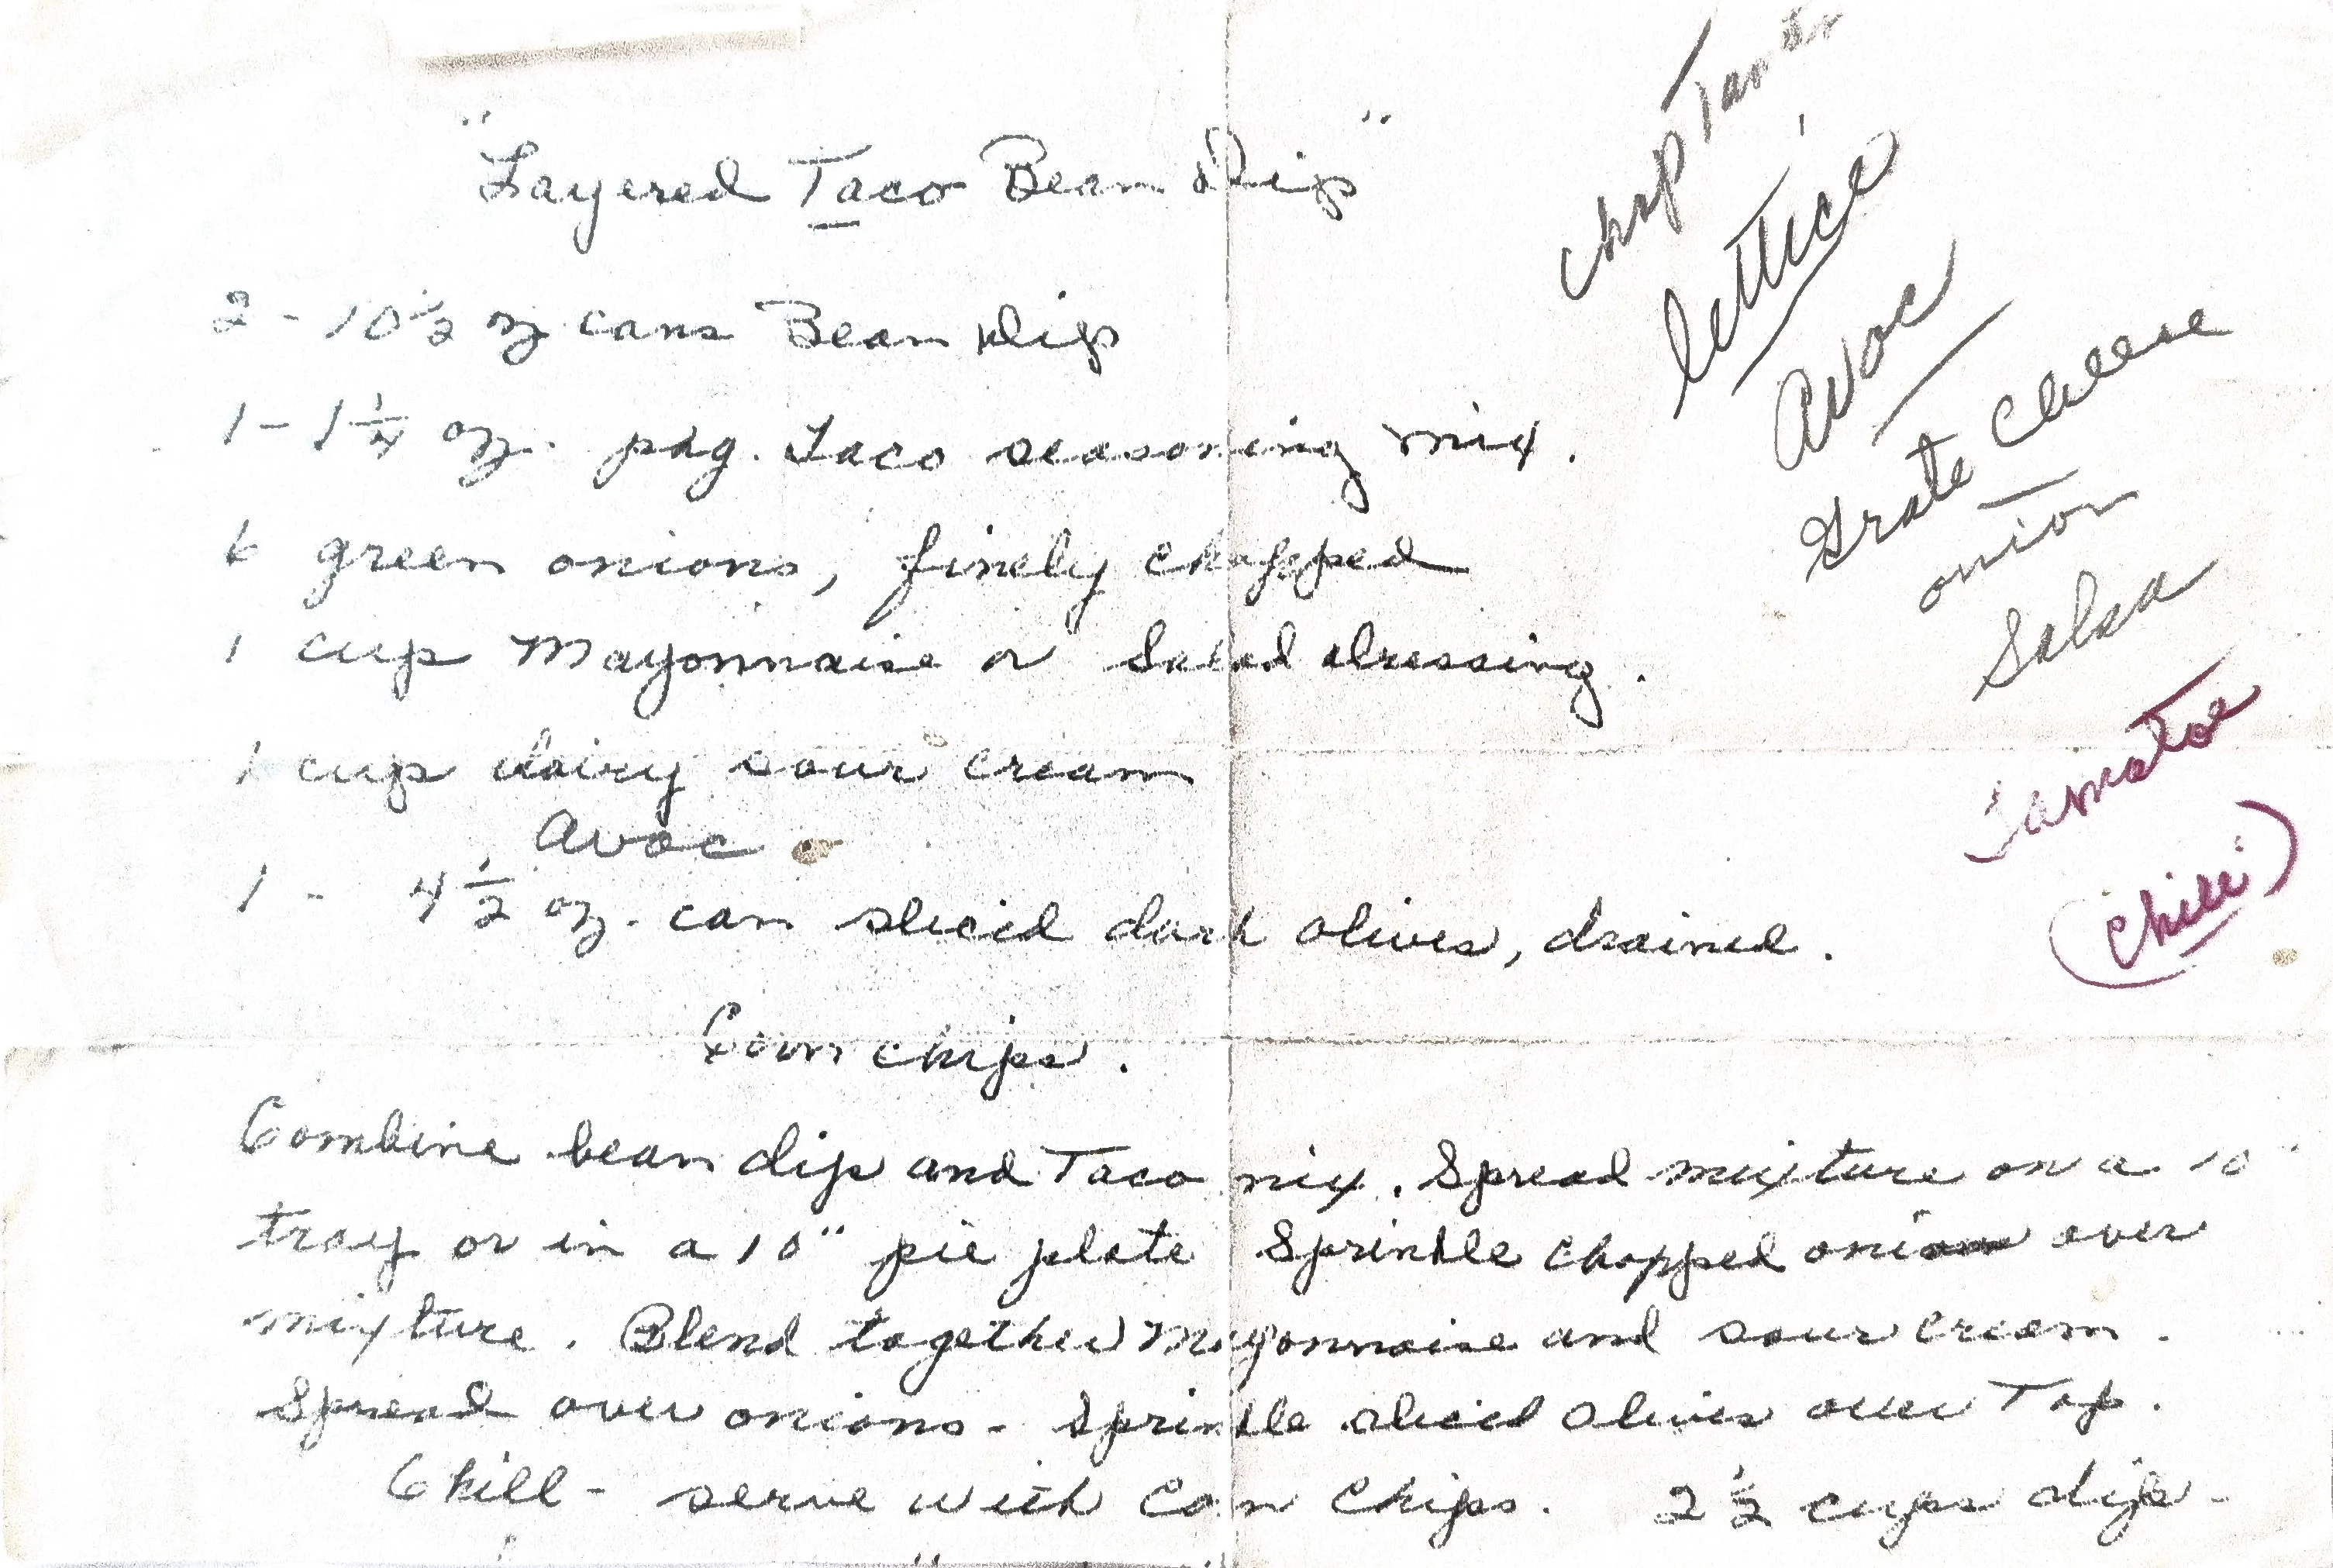 "Layered Taco Bean Dip"
2 - 10 1/2 oz cans Bean Dip
1 - 1 1/4 oz. pkg. Taco seasoning mix.
6 green onions, finely chopped
1 cup Mayonnaise or Salad dressing.
1 cup dairy sour cream
Avoc
1 - 4 1/2 oz. can sliced dark olives, drained.
Corn chips.
Combine bean dip and Taco mix. Spread mixture on a 10"
tray or in a 10" pie plate Sprinkle chopped onion over
mixture. Blend together Mayonnaise and sour cream.
Spread over onions - Sprinkle sliced olives over Top.
Chill - serve with Corn Chips. 2 1/2 cups dip -
Chop
lettice
Avoc
Grate Cheese
onion
Salsa
Tamatoe
(Chili)